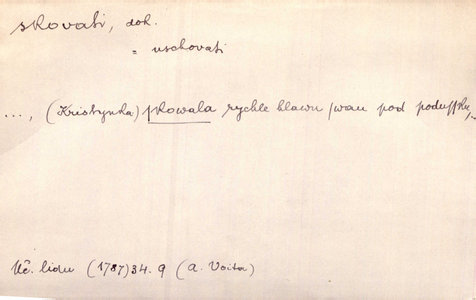 skovati, dok.
= uschovati
..., (Kristynka) skowala rychle hlawu swau pod podussku,..
Uč. lidu (1787) 34. 9 (A. Voita)